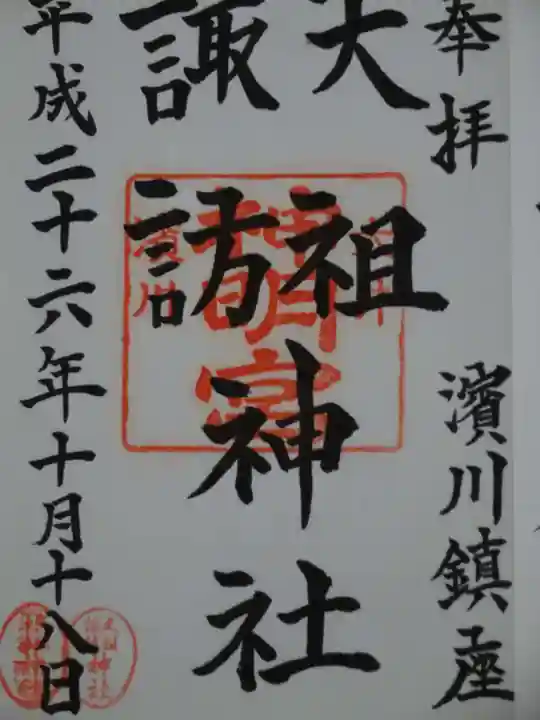 奉拝
濱川鎮座
大祖
諏訪
神社
平成二十六年十月十八日